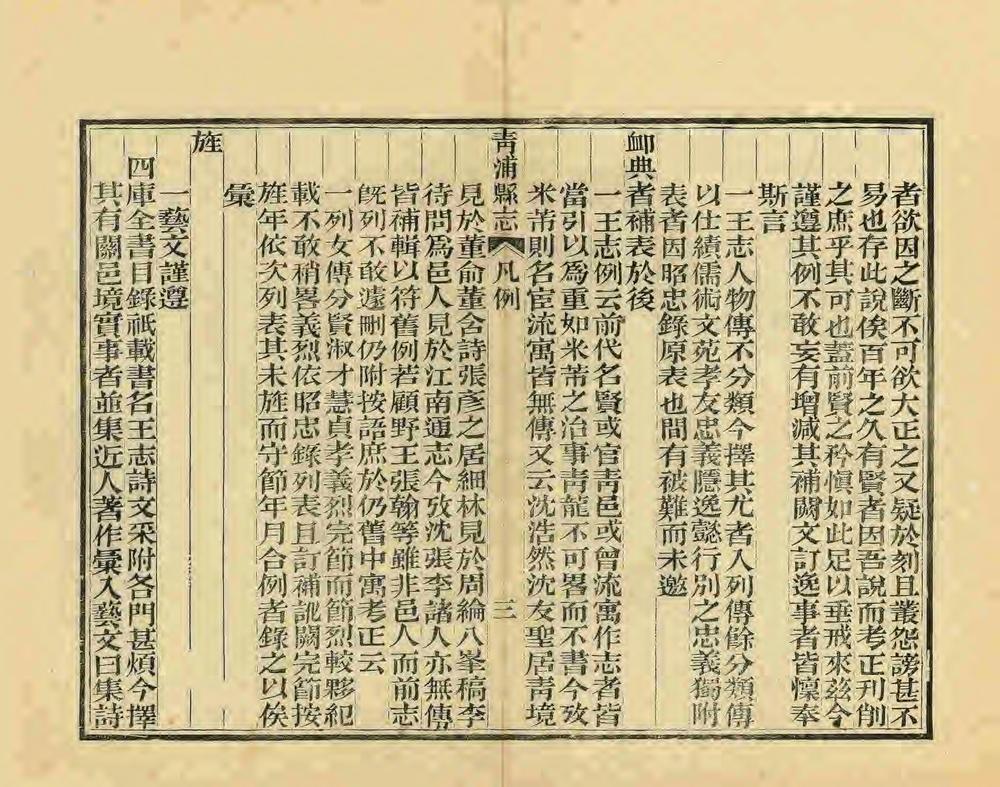 者欲因之斷不可欲大正之又疑於刻且叢怨謗甚不
易也存此說俟百年之久有賢者因吾說而考正刊削
之庶乎其可也蓋前賢之矜慎如此足以垂戒來玆今
謹遵其例不敢妄有增減其補闕文訂逸事者皆懍奉
斯言
一王志人物傳不分類今擇其尤者入列傳餘分類傳
以仕績儒術文苑孝友忠義隱逸懿行別之忠義獨附
表者因昭忠錄原表也間有被難而未邀
卹典者補表於後
一王志例云前代名賢或官靑邑或曾流寓作志者皆
當引以爲重如米芾之治事靑龍不可畧而不書今攷
米芾則名宦流寓皆無傳又云沈浩然沈友聖居靑境
靑浦縣志 凡例 三
見於董俞董含詩張彥之居細林見於周綸八峯稿李
待問爲邑人見於江南通志今攷沈張李諸人亦無傳
皆補輯以符舊例若顧野王張翰等雖非邑人而前志
旣列不敢遽刪仍附按語庶於仍舊中寓考正云
一列女傳分賢淑才慧貞孝義烈完節而節烈較夥紀
載不敢稍畧義烈依昭忠錄列表且訂補訛闕完節按
旌年依次列表其未旌而守節年月合例者錄之以俟
彙
旌
一藝文謹遵
四庫全書目錄祇載書名王志詩文采附各門甚煩今擇
其有關邑境實事者並集近人著作彙入藝文曰集詩